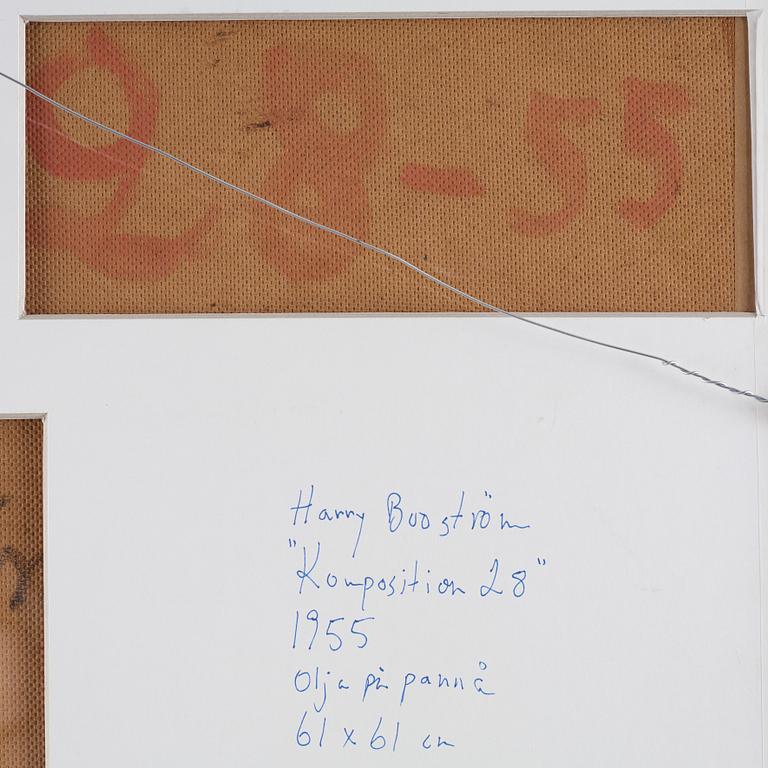 28-55
Harry Booström
"Komposition 28"
1955
Olja på pannå
61 x 61 cm